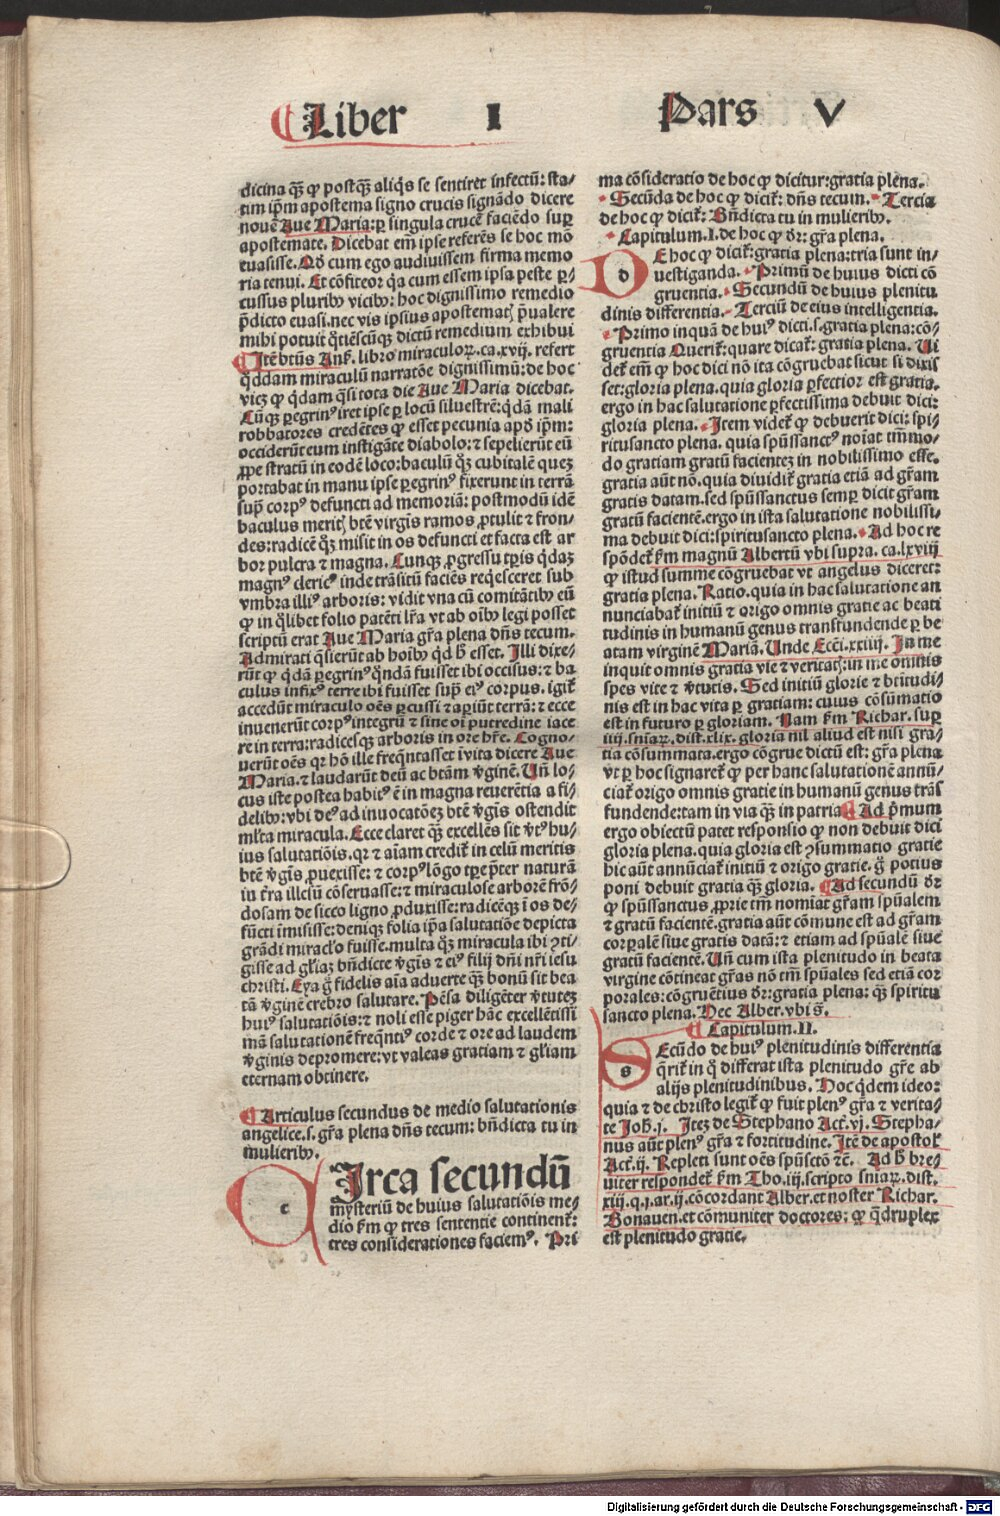 Liber I Pars V
dicina qȝ ꝙ postqȝ aliq̊s se sentiret infectū: sta-
tim ip̄m apostema signo crucis signādo dicere
nouē Aue Maria: ꝑ singula crucē faciēdo suꝑ
apostemate. Dicebat em̄ ipse referēs se hoc mō
euasisse. Qd̄ cum ego audiuissem firma memo
ria tenui. Et cōfiteor q̇a cum essem ipsa peste ꝑ-
cussus pluribꝰ vicibꝰ: hoc dignissimo remedio
p̄dicto euasi. nec vis ipsius apostematꝭ p̄ualere
mihi potuit q̊tiēscūqȝ dictū remedium exhibui
¶ Itē btūs Ansꝭ. libro miraculoꝝ. ca. xvij. refert
q̊ddam miraculū narratōe dignissimū: de hoc
vicȝ ꝙ q̇dam q̊si tota die Aue Maria dicebat.
Cūqȝ ꝑegrinꝰ iret ipse ꝑ locū siluestrē: q̇dā mali
robbatores credētes ꝙ esset pecunia apd̓ ip̄m:
occiderūt eum instigāte diabolo: ⁊ sepelierūt eū
ꝓpe stratū in eodē loco: baculū qȝ cubitalē queȝ
portabat in manu ipse ꝑegrinꝰ fixerunt in terrā
sup̄ corpꝰ defuncti ad memoriā: postmodū idē
baculus meritꝭ btē virgis ramos ꝓtulit ⁊ fron-
des: radicē qȝ misit in os defuncti et facta est ar
bor pulcra ⁊ magna. Cunqȝ ꝓgressu tꝑis q̇daȝ
magnꝰ clericꝰ inde trāsitū faciēs reqesceret sub
vmbra illiꝰ arboris: vidit vna cū comitātibꝰ eū
ꝙ in q̊libet folio patēti lr̄a vt ab oībꝰ legi posset
scriptū erat Aue Maria gr̄a plena dn̄s tecum.
Admirati q̊sierūt ab hoībꝰ qd̓ h̄ esset. Illi dixe-
rūt ꝙ q̇dā ꝑegrinꝰ q̊ndā fuisset ibi occisus: ⁊ ba
culus infixꝰ terre ibi fuisset sup̄ eiꝰ corpus. igiť
accedūt miraculo oēs ꝑcussi ⁊ aꝑiūt terrā: ⁊ ecce
inuenerūt corpꝰ integrū ⁊ sine oī putredine iace
re in terra: radicesqȝ arboris in ore hr̄e. Cogno-
uerūt oēs qr hō ille freq̄ntasset ī vita dicere Aue
Maria. ⁊ laudarūt deū ac btām v̓ginē. Un̄ lo-
cus iste postea habitꝰ ē in magna reuerētia a fi-
delibꝰ: vbi deꝰ ad inuocatōeȝ btē v̓gis ostendit
ml̓ta miracula. Ecce claret qȝ excellēs sit v̓tꝰ hu-
ius salutatiōis. qr ⁊ aīam credit̄ in celū meritis
btē v̓gis ꝓuexisse: ⁊ corpꝰ lōgo tꝑe p̄ter naturā
in t̓ra illesū cōseruasse: ⁊ miraculose arborē frō-
dosam de sicco ligno ꝓduxisse: radicēqȝ ī os de-
fūcti īmisisse: deniqȝ folia ip̄a salutatiōe depicta
grādi miracl̓o fuisse. multa qȝ miracula ibi ꝯti-
gisse ad gl̓iaȝ bn̄dicte v̓gis ⁊ eiꝰ filij dn̄i nr̄i iesu
christi. Eya g̊ fidelis aīa aduerte qȝ bonū sit bea
tā v̓ginē crebro salutare. Pēsa diligēter v̓tuteȝ
huiꝰ salutatiōis: ⁊ noli esse piger hāc excellētissi
mā salutationē freq̄nti corde ⁊ ore ad laudem
v̓ginis depromere: vt valeas gratiam ⁊ gl̓iam
eternam obtinere.
¶ Articulus secundus de medio salutationis
angelice. s. gr̄a plena dn̄s tecum: bn̄dicta tu in
mulieribꝰ.
c Irca secundū
mysteriū de huius salutatiōis me-
dio ẜm ꝙ tres sententie continent̄:
tres considerationes faciemꝰ. Pri
ma cōsideratio de hoc ꝙ dicitur: gratia plena.
Secūda de hoc ꝙ dicit̄: dn̄s tecum. Tercia
de hoc ꝙ dicit̄: Bn̄dicta tu in mulieribꝰ.
Capitulum. I. de hoc ꝙ dr̄: gr̄a plena.
d E hoc ꝙ dicit̄: gratia plena: tria sunt in-
uestiganda. Primū de huius dicti cō
gruentia. Secundū de huius plenitu
dinis differentia. Terciū de eius intelligentia.
Primo inquā de huiꝰ dicti. s. gratia plena: cō-
gruentia Querit̄: quare dicat̄: gratia plena. Ui
det̄ em̄ ꝙ hoc dici nō ita cōgruebat sicut si dixis
set: gloria plena. quia gloria ꝑfectior est gratia.
ergo in hac salutatione ꝑfectissima debuit dici:
gloria plena. Item videt̄ ꝙ debuerit dici: spi-
ritusancto plena. quia spūssanctꝰ noīat tm̄mo-
do gratiam gratū facienteȝ in nobilissimo esse.
gratia aūt nō. quia diuidit̄ gratia etiā ad gr̄am
gratis datam. sed spūssanctus semꝑ dicit gr̄am
gratū facientē. ergo in ista salutatione nobilissi-
ma debuit dici: spiritusancto plena. Ad hoc re
spōdet̄ ẜm magnū Albertū vbi supra. ca. lxviij
ꝙ istud summe cōgruebat vt angelus diceret:
gratia plena. Ratio. quia in hac salutatione an
nunciabat̄ initiū ⁊ origo omnis gratie ac beati
tudinis in humanū genus transfundende ꝑ be
atam virginē Mariā. Unde Ecci. xxiiij. In me
inquit omnis gratia vie ⁊ veritatꝭ: in me omnis
spes vite ⁊ v̓tutis. Sed initiū glorie ⁊ btītudi-
nis est in hac vita ꝑ gratiam: cuius cōsumatio
est in futuro ꝑ gloriam. Nam ẜm Richar. suꝑ
iiij. sniaꝝ. dist. xlix. gloria nil aliud est nisi gra-
tia cōsummata. ergo cōgrue dictū est: gr̄a plena
vt ꝑ hoc signaret̄ ꝙ per hanc salutationē annū-
ciat̄ origo omnis gratie in humanū genus trās
fundende: tam in via qȝ in patria ¶ Ad p̓mum
ergo obiectū patet responsio ꝙ non debuit dici
gloria plena. quia gloria est ꝯsummatio gratie
hic aūt annūciat̄ initiū ⁊ origo gratie. g̊ potius
poni debuit gratia qȝ gloria. ¶ Ad secundū dr̄
ꝙ spūssanctus ꝓprie tm̄ nomīat gr̄am spūalem
⁊ gratū facientē. gratia aūt cōmune est ad gr̄am
corꝑalē siue gratis datā: ⁊ etiam ad spūalē siue
gratū facientē. Un̄ cum ista plenitudo in beata
virgine cōtineat gr̄as nō tm̄ spūales sed etiā cor
porales: cōgruētius dr̄: gratia plena: qȝ spiritu
sancto plena. Hec Alber. vbi s̄.
¶ Capitulum. II.
s Ecūdo de huiꝰ plenitudinis differentia
q̄rit̄ in q̊ differat ista plenitudo gr̄e ab
alijs plenitudinibus. Hoc q̇dem ideo:
quia ⁊ de christo legit̄ ꝙ fuit plenꝰ gr̄a ⁊ verita-
te Joh̄. j. Iteȝ de Stephano Act̓. vj. Stepha-
nus aūt plenꝰ gr̄a ⁊ fortitudine. Itē de apostol̓
Act̓. ij. Repleti sunt oēs spūsctō ⁊c̄. Ad h̄ bre-
uiter respondet̄ ẜm Tho. iij. scripto sniaꝝ. dist.
xiij. q. j. ar. ij. cōcordant Alber. et noster Richar.
Bonauen. et cōmuniter doctores: ꝙ q̇druplex
est plenitudo gratie.
Digitalisierung gefördert durch die Deutsche Forschungsgemeinschaft - DFG